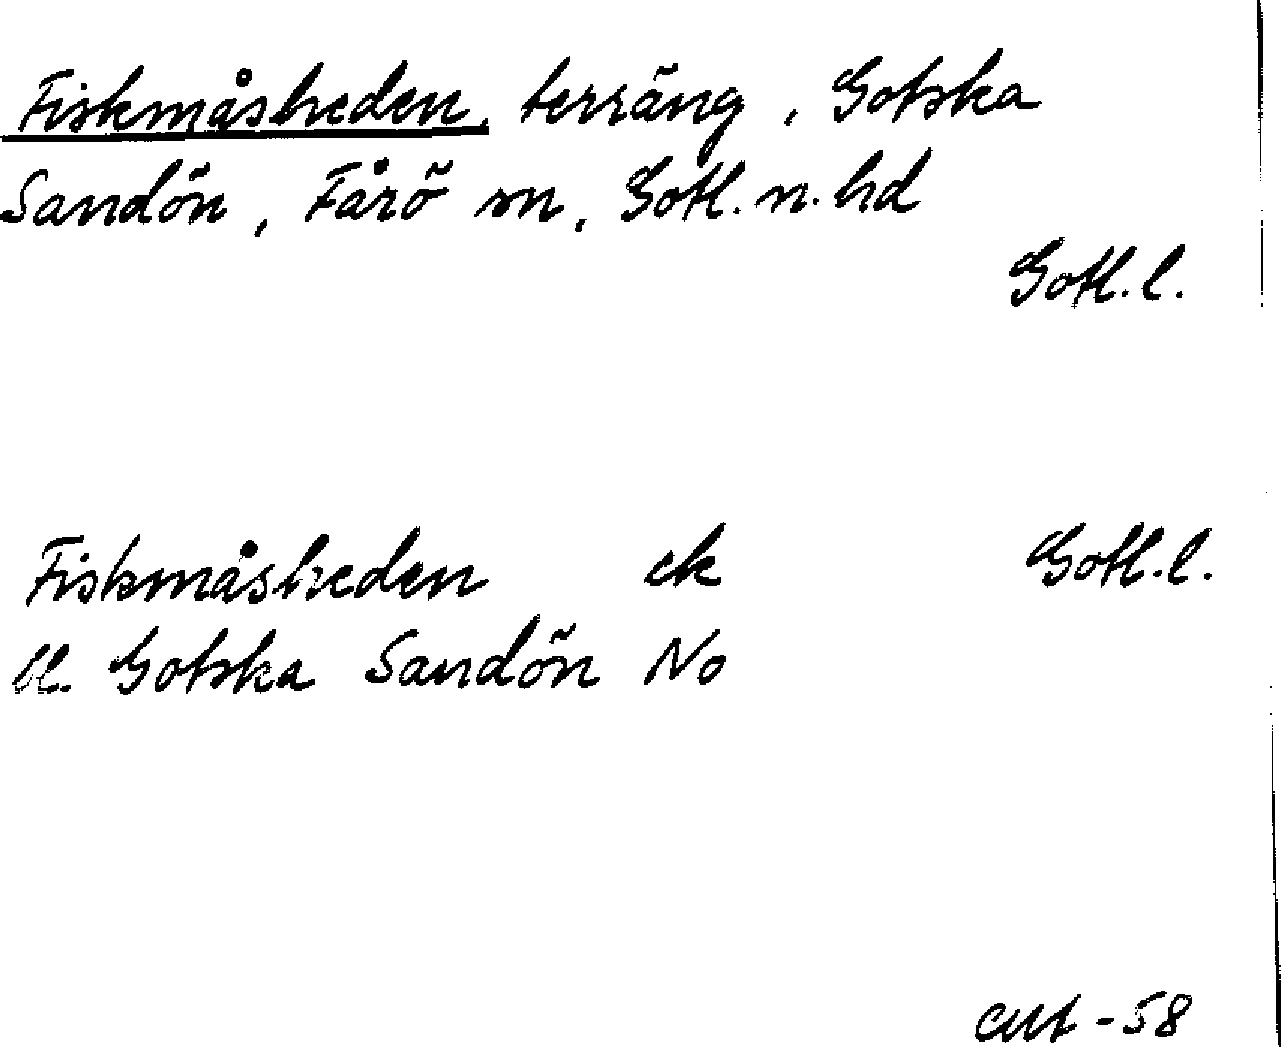 Fiskmåsheden, terräng, Gotska
Sandön, Fårö sn, Gotl. n. hd
Gotl. l.
Fiskmåsheden ek Gotl. l.
bl. Gotska Sandön No
-58